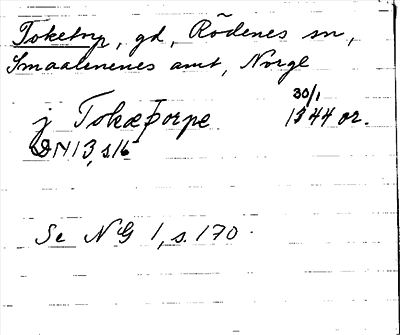 Toketorp, gd, Rödenes sn,
Smaalenenes amt, Norge
30/1
j Tokæþorpe 1344 or.
DN 13, s. 16
Se NG 1, s. 170.